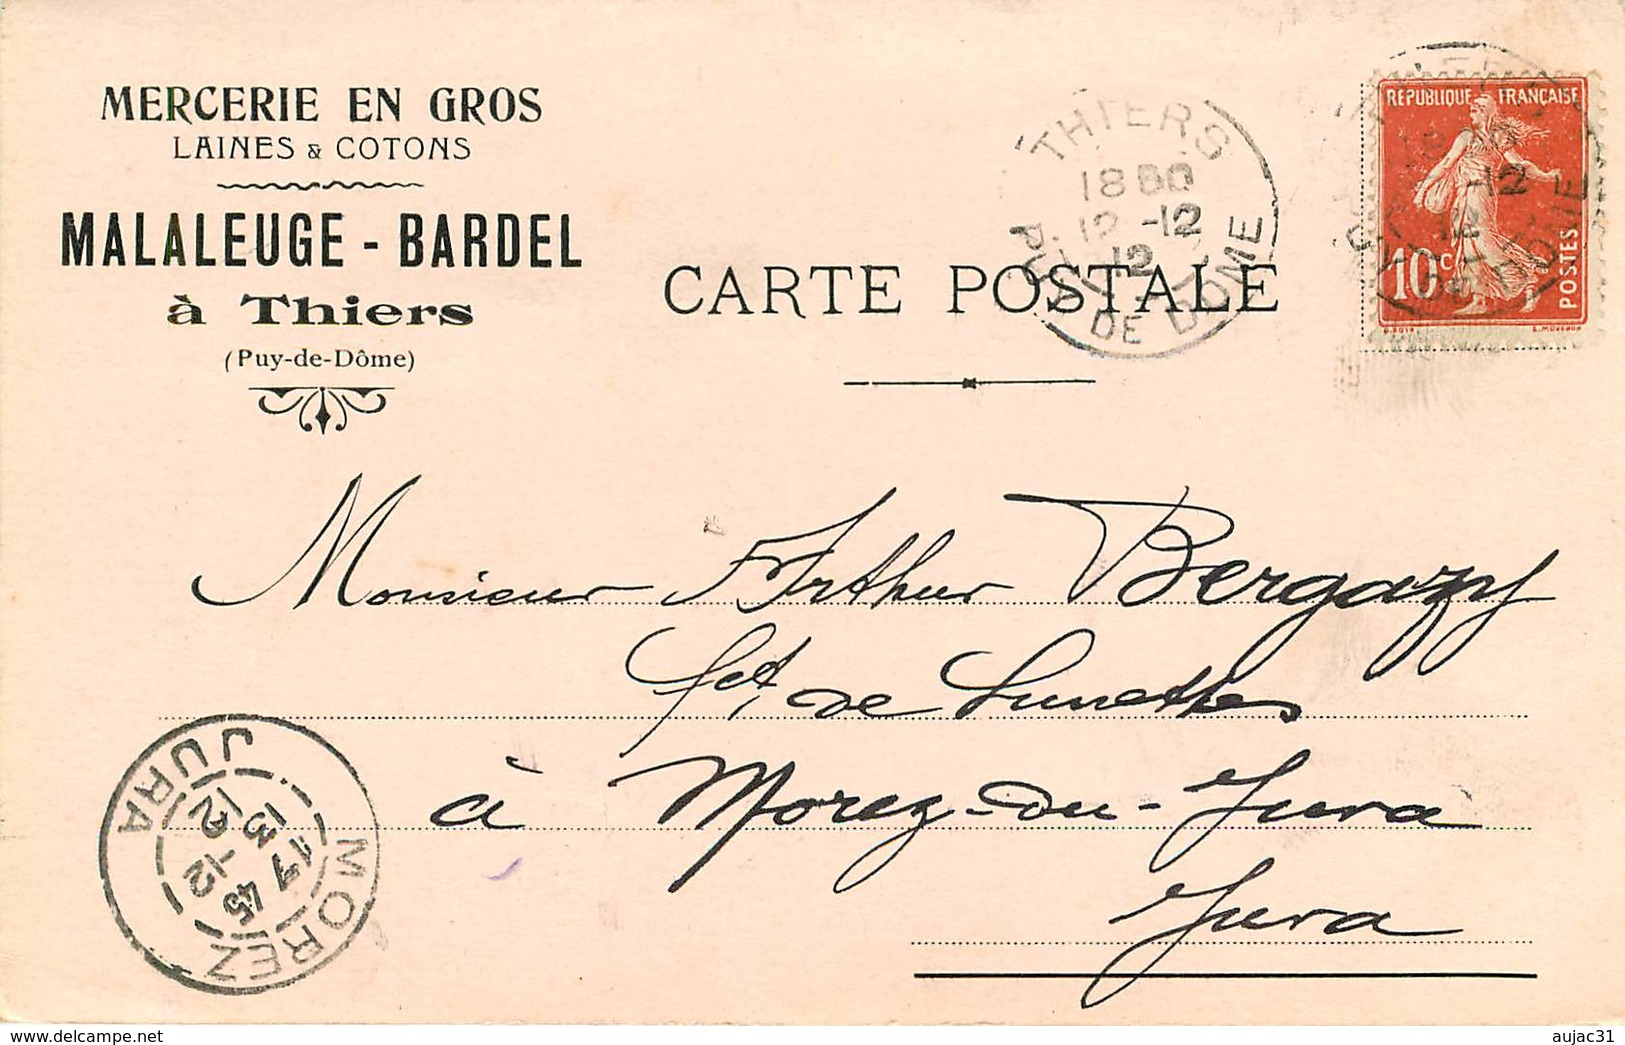 MERCERIE EN GROS
LAINES & COTONS
MALALEUGE - BARDEL
à Thiers
(Puy-de-Dôme)
CARTE POSTALE
THIERS
18
12 -12
12
PUY DE DOME
REPUBLIQUE FRANÇAISE
10 c
POSTES
-12
12
DOME
Monsieur Arthur Bergazy
fct. de Lunettes
à Morez-du-Jura
Jura
MOREZ
17 45
13 -12
12
JURA
www.delcampe.net
aujac31